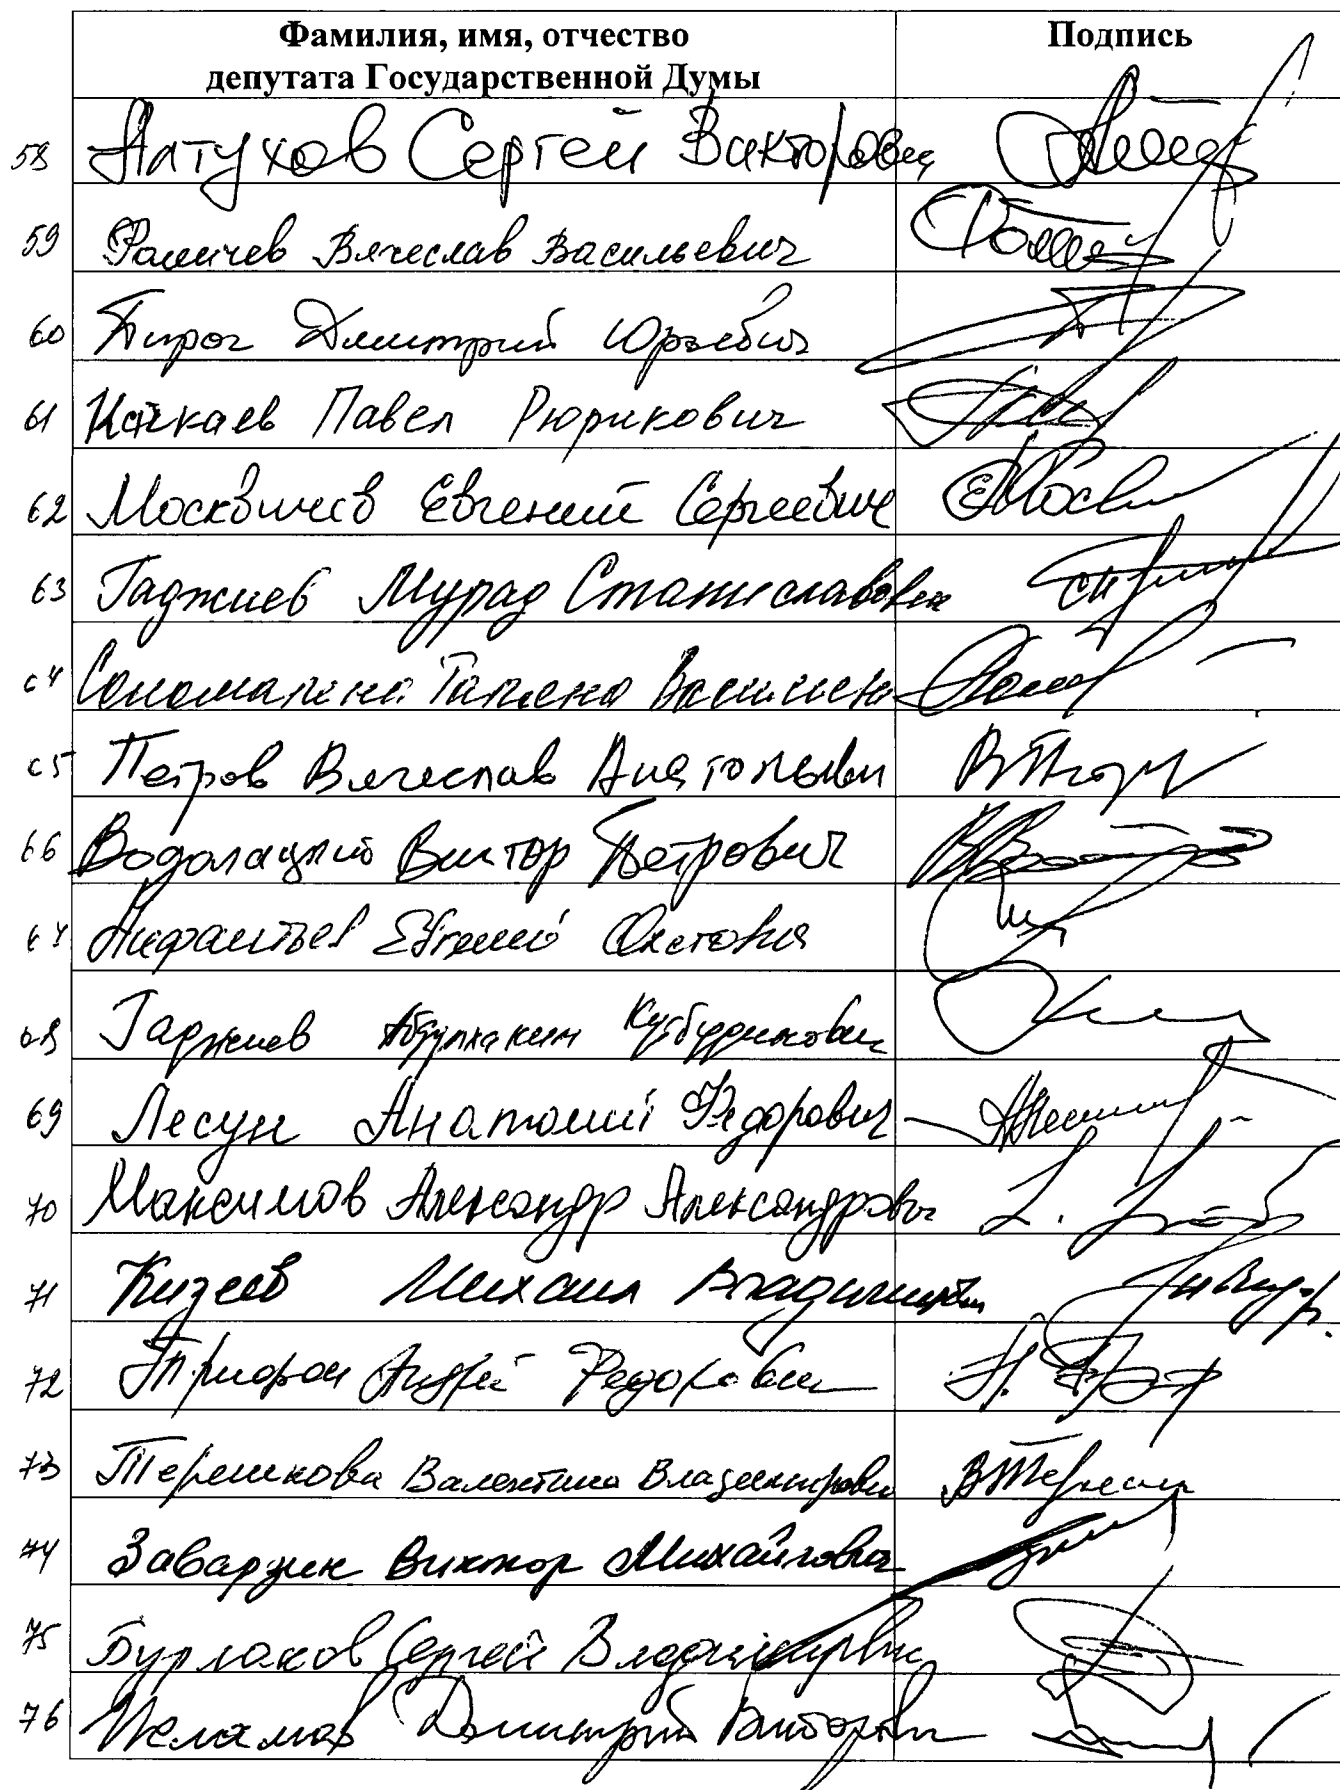 Фамилия, имя, отчество Подпись
депутата Государственной Думы
58 Алтухов Сергей Викторович
59 Фомичев Вячеслав Васильевич
60 Пирог Дмитрий Юрьевич
61 Качкаев Павел Рюрикович
62 Москвичев Евгений Сергеевич
63 Гаджиев Мурад Станиславович
64 Соломатина Татьяна Васильевна
65 Петров Вячеслав Анатольевич
66 Водолацкий Виктор Петрович
67 Нифантьев Евгений Олегович
68 Гаджиев Абдулхаким Кутбудинович
69 Лесун Анатолий Федорович
70 Максимов Александр Александрович
71 Кизеев Михаил Владимирович
72 Трифонов Андрей Федорович
73 Терешкова Валентина Владимировна
74 Заварзин Виктор Михайлович
75 Бурлаков Сергей Владимирович
76 Дмитрий Викторович